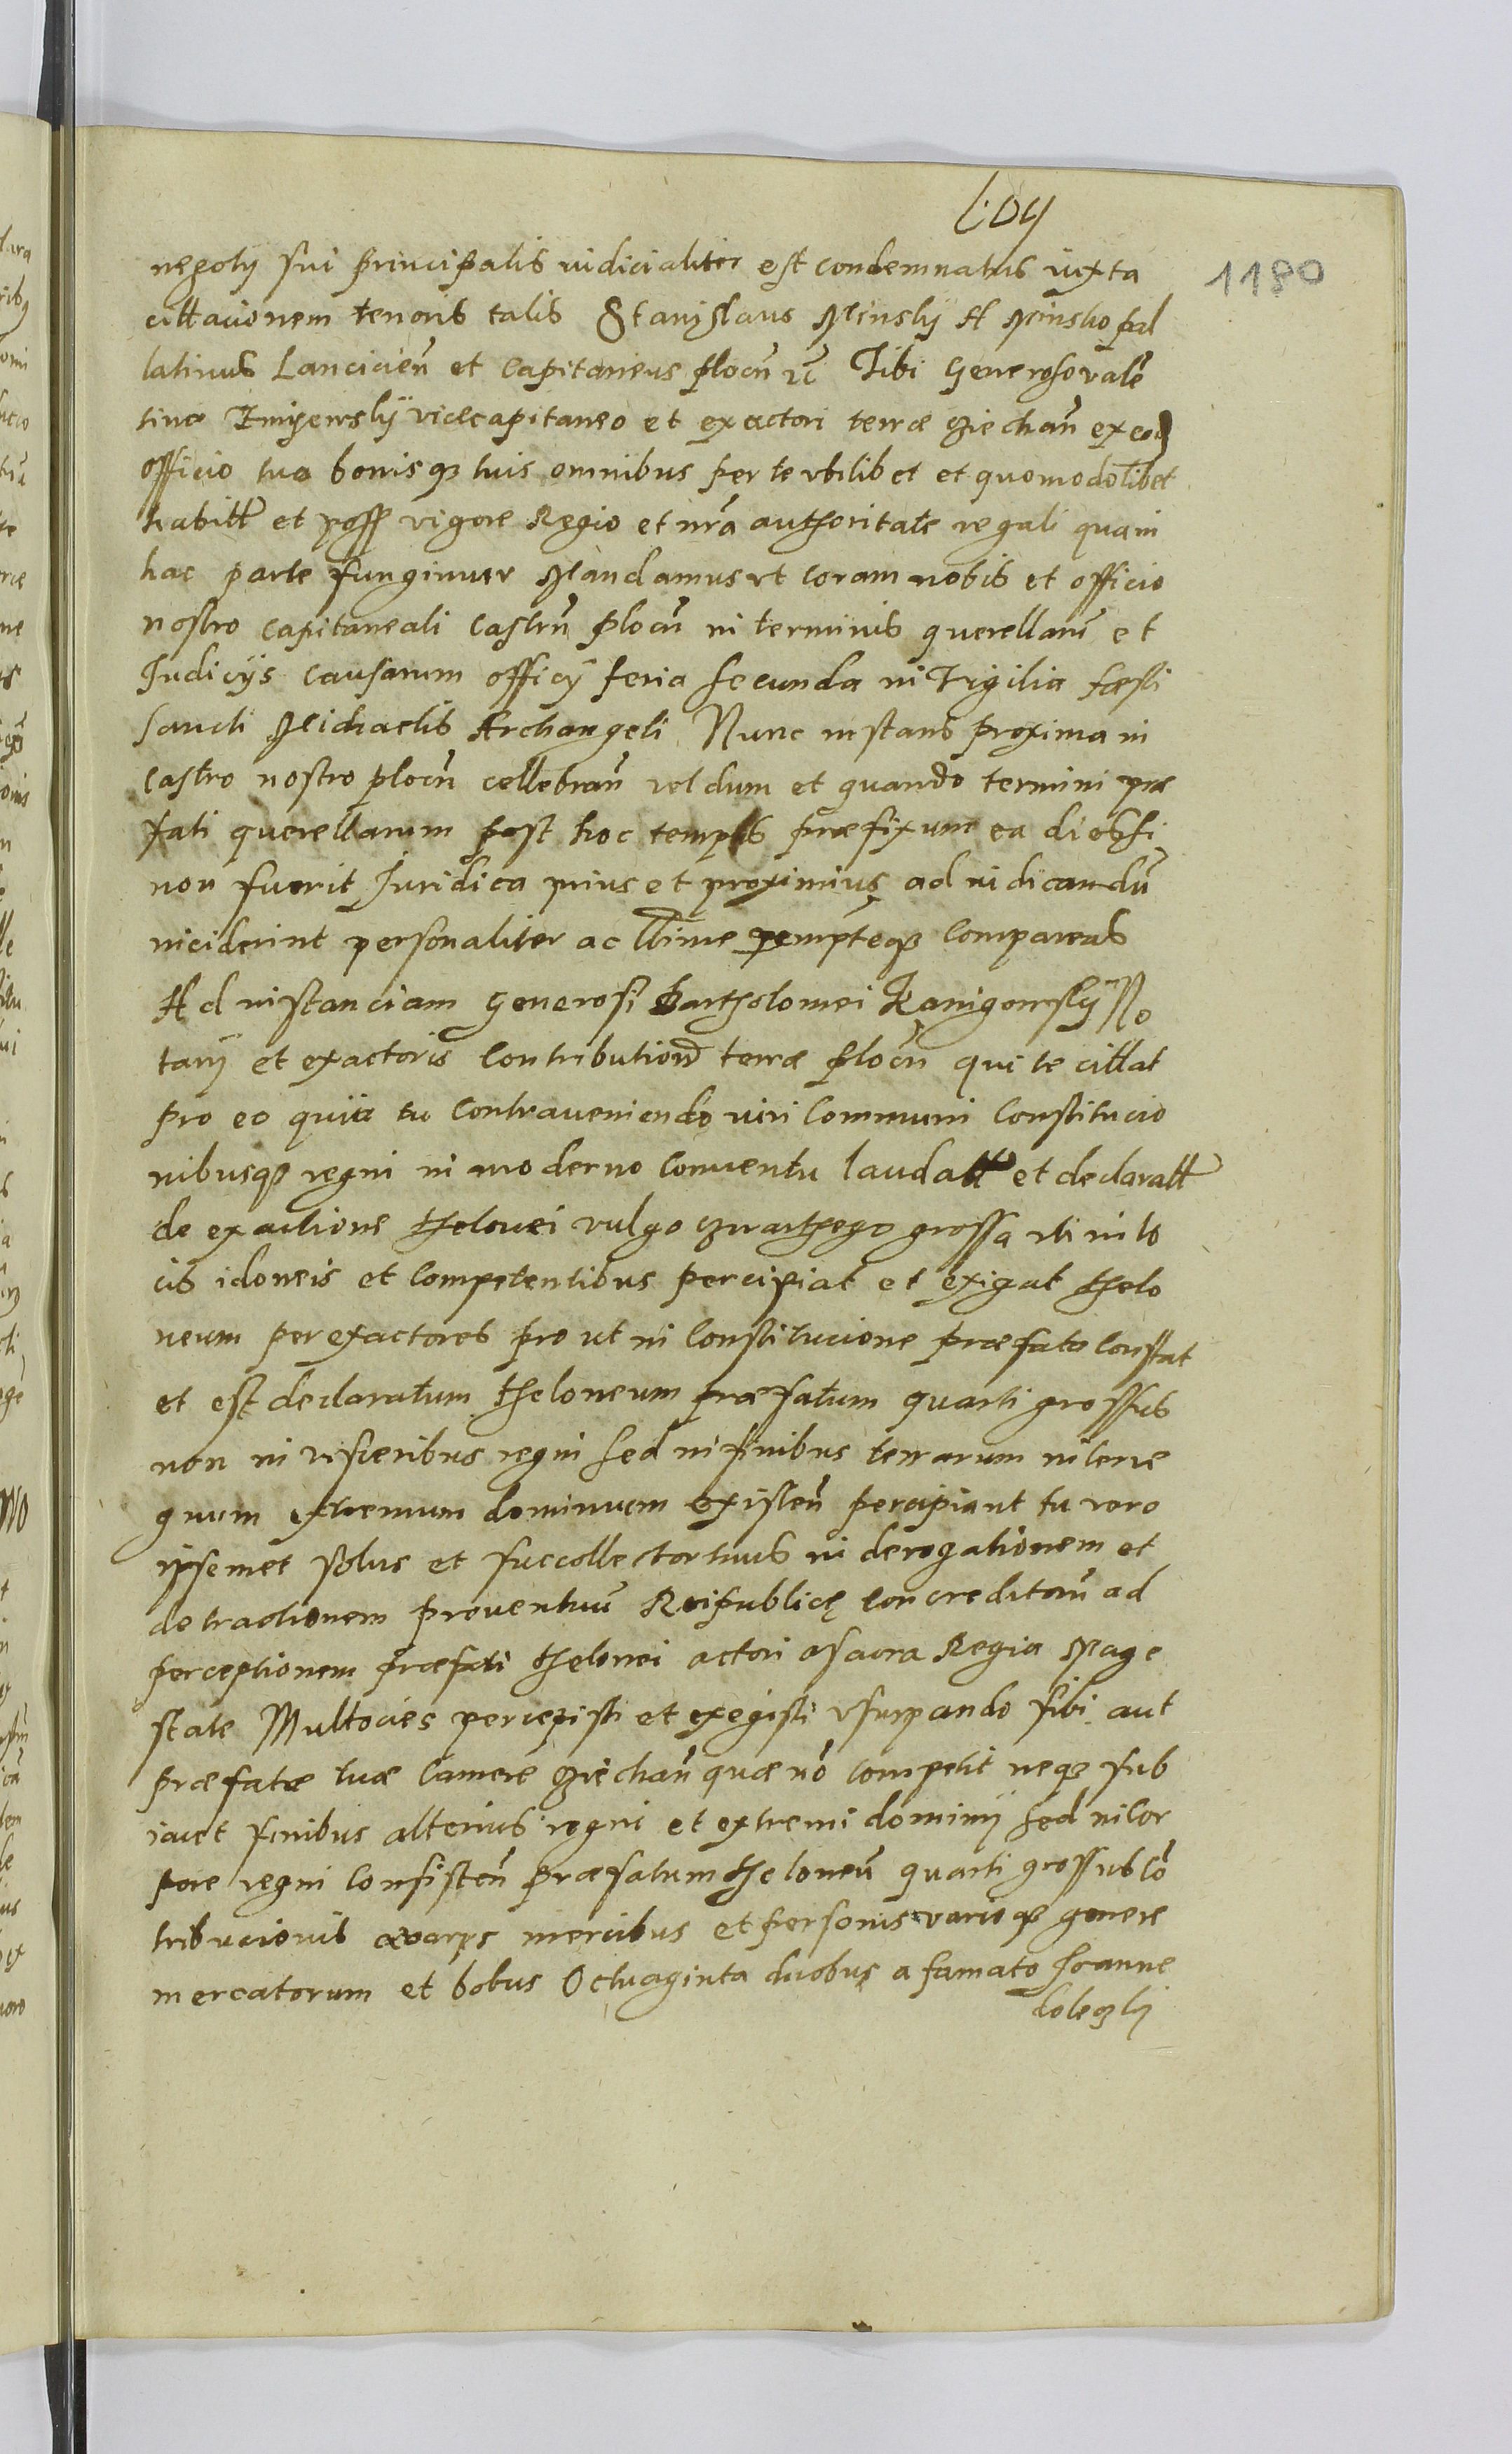 1180
negotij sui principalis iudicialiter est condemnatus iuxta
cittacionem tenoris talis Stanislaus Minskij A Minsko pal
latinus Lancicien̄ et Capitaneus plocn̄ Tibi Generoso valē
tino viccecapitaneo et exactori terræ Cziechan̄ ex eod
officio tuo bonisq3 tuis omnibus per te vbilibet et quomodolibet
habitt et poss vigore Regio et nr̄a authoritate regali qua in
hac parte fungimur Mandamus vt coram nobis et officio
nostro capitaneali castrn̄ plocn̄ in terminis querellarū et
Iudicijs causarum officij feria secunda in Vigilia fæsti
Sancti Michaelis Archangeli Nunc instans proxima in
castro nostro plocn̄ cellebran̄ vel dum et quando termini præ
fati querellarum post hoc tempus præfixum ea dies si
non fuerit Iuridica prius et proximius ad iudicandū
inciderint personaliter ac ttime pemptēq3 compareas
Ad instanciam Generosi Bartholomei Kanigowskij No
tarij et exactoris contribution̄ terræ plocn̄ qui te cittat
pro eo quia tu contraueniendo iuri communi constitucio
nibusq3 regni in moderno conuentu laudatt et declaratt
de exactione thelonei vulgo czwarthego grossa uti in lo
cis idoneis et competentibus percipiat et exigat thelo
neum per exactores pro ut in constitucione præfata constat
et est declaratum theloneum præfatum quarti grossus
non in visceribus regni sed in finibus terrarum inter re
gnum extremum dominium existen̄ percipiant tu vero
ipsemet solus et succollector tuus in derogationem et
detractionem prouentuū Reipublicę concreditorū ad
perceptionem præfati thelonei actori a sacra Regia Mage
state Multocies percepisti et exegisti vsurpando sibi aut
præfatæ tuæ Camere Cziechan̄ quæ nō competit neq3 sub
iacet finibus alterius regni et extremi dominij sed in cor
pore regni consisten̄ præfatum theloneū quarti grossus cō
tribucionis a varijs mercibus et personis varioq3 genere
mercatorum et bobus Octuaginta duobus a famato Joanne